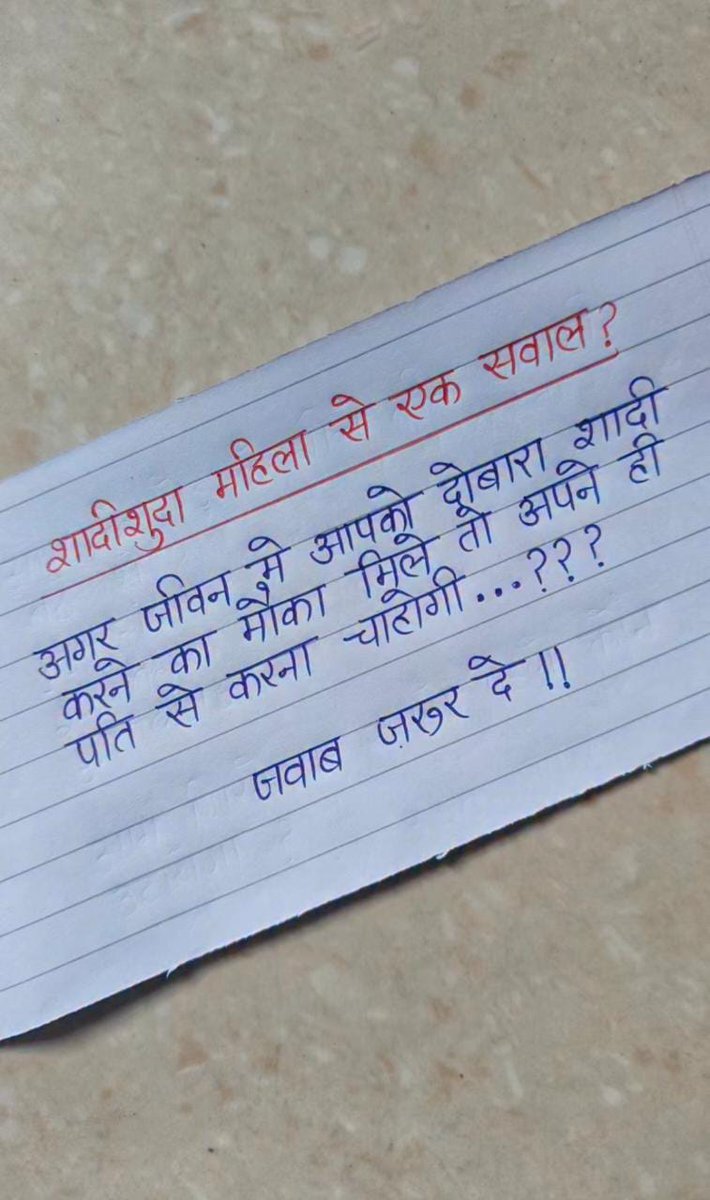 शादीशुदा महिला से एक सवाल?
अगर जीवन मे आपको दोबारा शादी
करने का मौका मिले तो अपने ही
पति से करना चाहोगी...???
जवाब ज़रूर दे !!